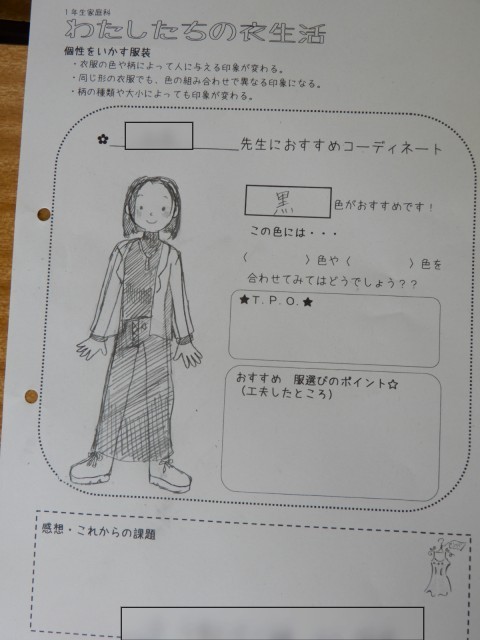 1年生家庭科
わたしたちの衣生活
個性をいかす服装
・衣服の色や柄によって人に与える印象が変わる。
・同じ形の衣服でも、色の組み合わせで異なる印象になる。
・柄の種類や大小によっても印象が変わる。
✿ 先生におすすめコーディネート
黒 色がおすすめです!
この色には・・・
( )色や( )色を
合わせてみてはどうでしょう??
★T.P.O.★
おすすめ 服選びのポイント☆
(工夫したところ)
感想・これからの課題